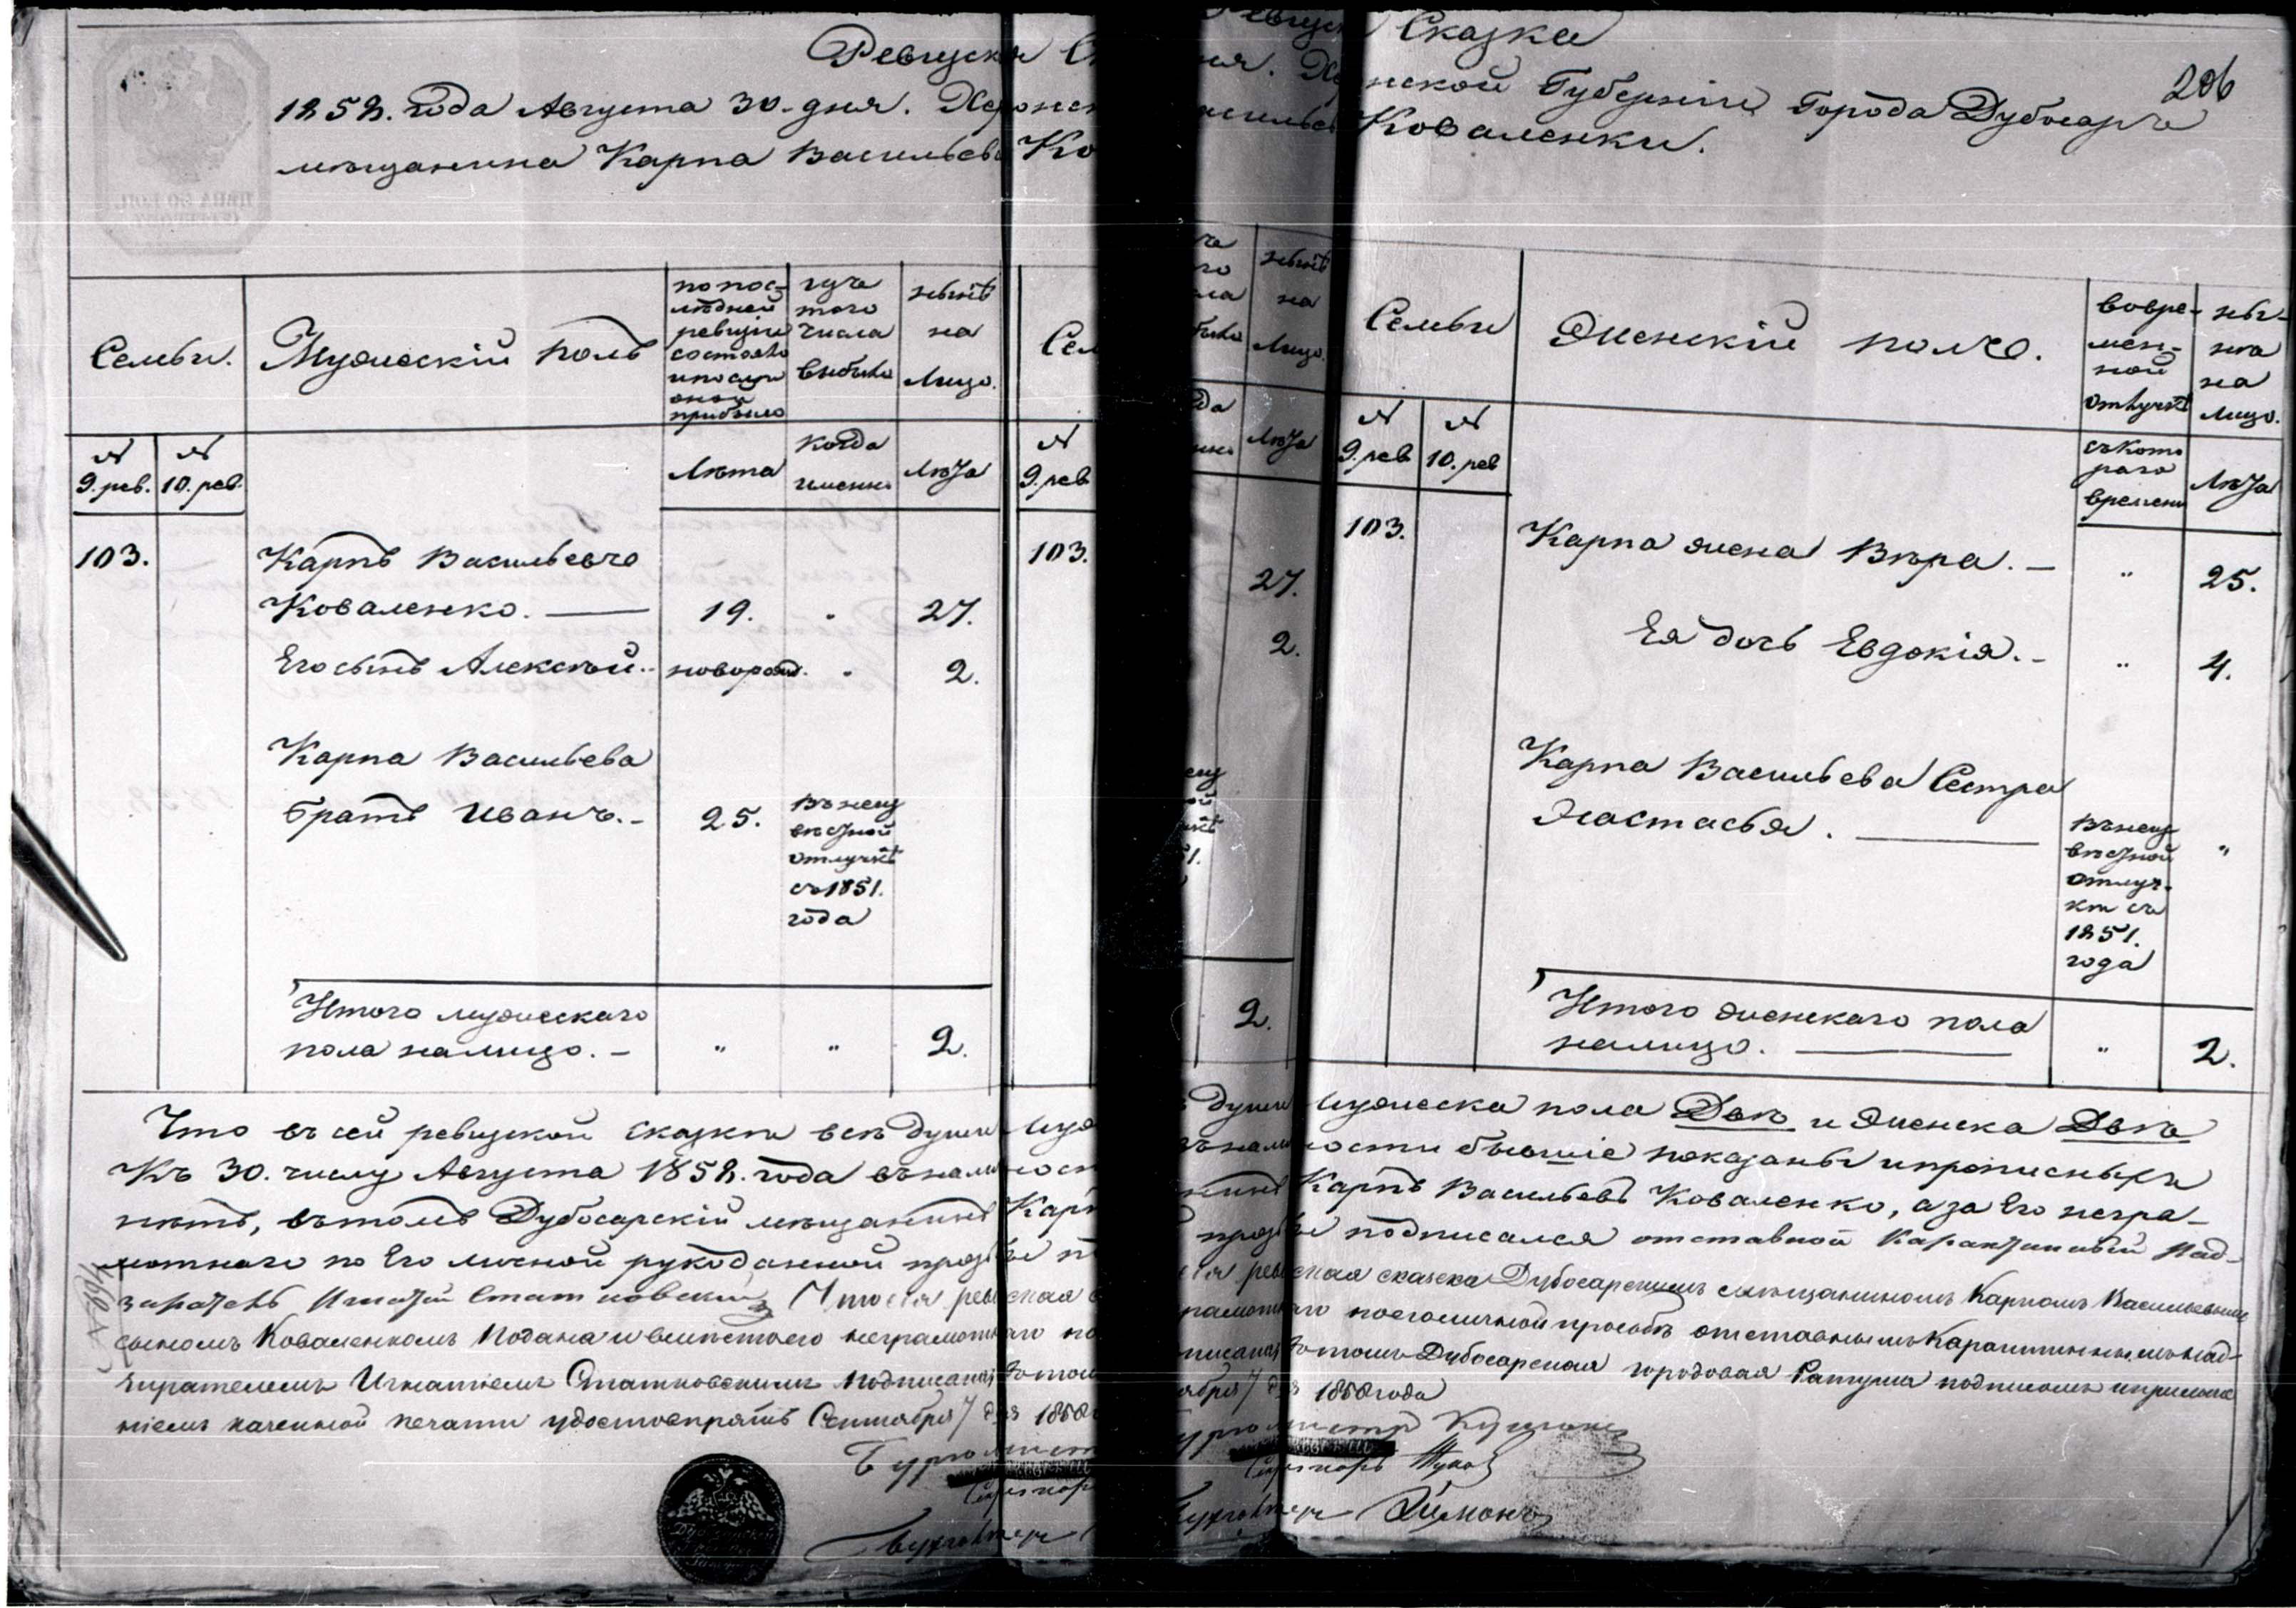 Ревизская Сказка
206
1858. года Августа 30. дня. Херсонской Губерніи Города Дубосаръ
мѣщанина Карпа Васильева Коваленки.
Семьи.
Мужескій полъ
по послѣдней ревизіи состояло и после оной прибыло
изъ того числа выбыло
нынѣ на лицо.
№ 9. рев.
№ 10. рев.
Лѣта
когда именно
Лѣта
103.
Карпъ Васильевъ
Коваленко. — 19. „ 27.
Его сынъ Алексѣй. новорожд. „ 2.
Карпа Васильева
братъ Иванъ. — 25.
въ неиз
вѣстной
отлучкѣ
съ 1851.
года
Итого мужескаго
пола налицо. — „ „ 2.
Семьи
Женскій полъ.
во вре-
мен-
ной
отлучкѣ
ны-
нѣ
на
лицо.
№ 9. рев
№ 10. рев
съ кото
раго
времени
Лѣта
103.
Карпа жена Вѣра. — „ 25.
Ея дочь Евдокія. — „ 4.
Карпа Васильева Сестра
Настасья. — „
въ неиз
вѣстной
отлуч-
кѣ съ
1851.
года
Итого женскаго пола
налицо. — „ 2.
Что въ сей ревизской сказкѣ всѣ души мужеска пола Двѣ и женска Двѣ
Къ 30. числу Августа 1858. года въ наличности бывшіе показаны и прописныхъ
нѣтъ, въ томъ Дубосарскій мѣщанинъ Карпъ Васильевъ Коваленко, а за Его негра-
мотнаго по Его личной рукоданной прозьбѣ подписался отставной Карантинный Над-
зиратель Игнатій Статковскій Что сія ревизская сказка Дубосарскимъ мѣщаниномъ Карпомъ Васильевымъ
сыномъ Коваленкомъ подана и вмѣсто его неграмотнаго по его личной прозьбѣ отставнымъ Карантиннымъ над-
зирателемъ Игнатіемъ Статковскимъ подписана, въ томъ Дубосарская городовая Ратуша подписомъ и приложе
ніемъ казенной печати удостовѣряетъ Сентября 7 дня 1858 года
Бургомистръ